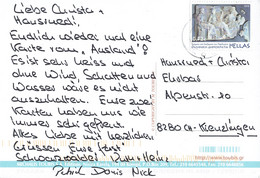 Liebe Christa +
Hansruedi.
Endlich wieder mal eine
Karte vom "Ausland"!
Es ist sehr heiss und
ohne Wind, Schatten und
Wasser wäre es nicht
auszuhalten. Eure zwei
Karten haben uns wie
immer sehr gefreut.
Alles Liebe mit herzlichen
Grüssen Eure
Doris Nick
HELLAS
Hansruedi + Christa
Alpenstr. 10
8280 CH - Kreuzlingen
http://www.toubis.gr